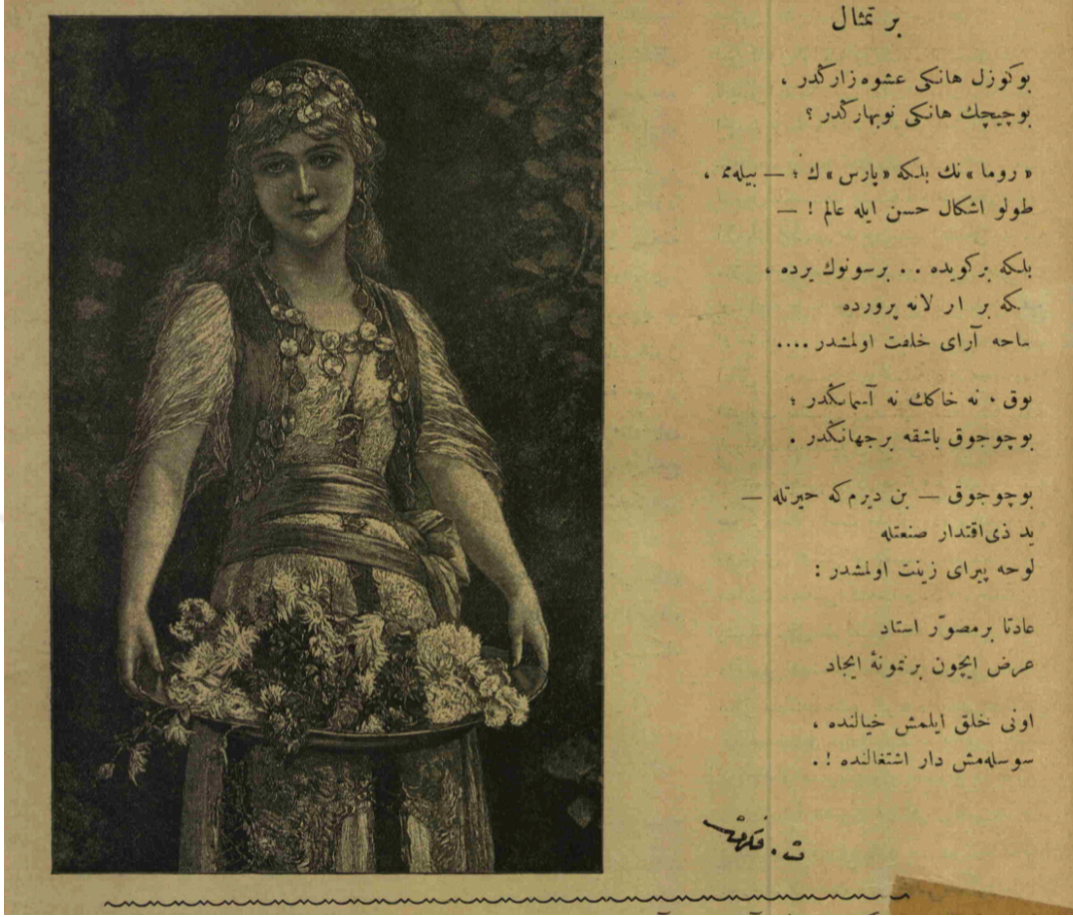 بر تمثال
بوكوزل هانكی عشوه‌زاركدر ،
بوچیچك هانكی نوبهاركدر ؟
« روما » نك بلكه « پارس » ك ؛ — بیله‌مم ،
طولو اشكال حسن ایله عالم ! —
بلكه بركویده . . برسونوك یرده ،
بر ار لانه پرورده
ساحه آرای خلقت اولمشدر ....
یوق ، نه خاكك نه آسمانكدر ؛
بوچوجوق باشقه برجهانكدر .
بوچوجوق — بن دیرم‌كه حیرتله —
ید ذی‌اقتدار صنعتله
لوحه پیرای زینت اولمشدر :
عادتا برمصوّر استاد
عرض ایچون برنمونهٔ ایجاد
اونی خلق ایلمش خیالنده ،
سوسله‌مش دار اشتغالنده ! .
ت . فكرت